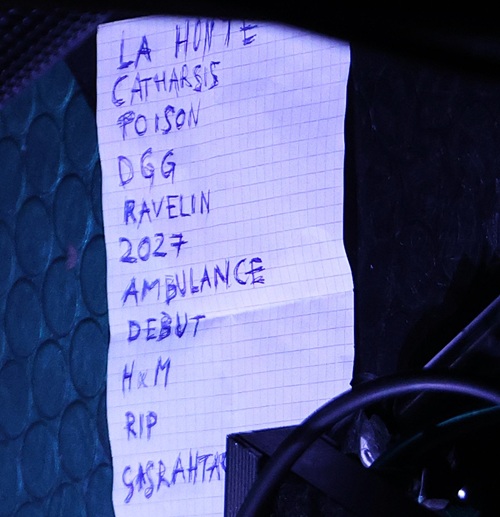 LA HONTE
CATHARSIS
POISON
DGG
RAVELIN
2027
AMBULANCE
DEBUT
HxM
RIP